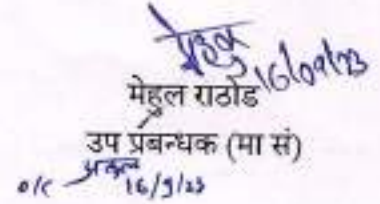 16/09/23
मेहुल राठोड
उप प्रबन्धक (मा सं)
o/c
16/9/23